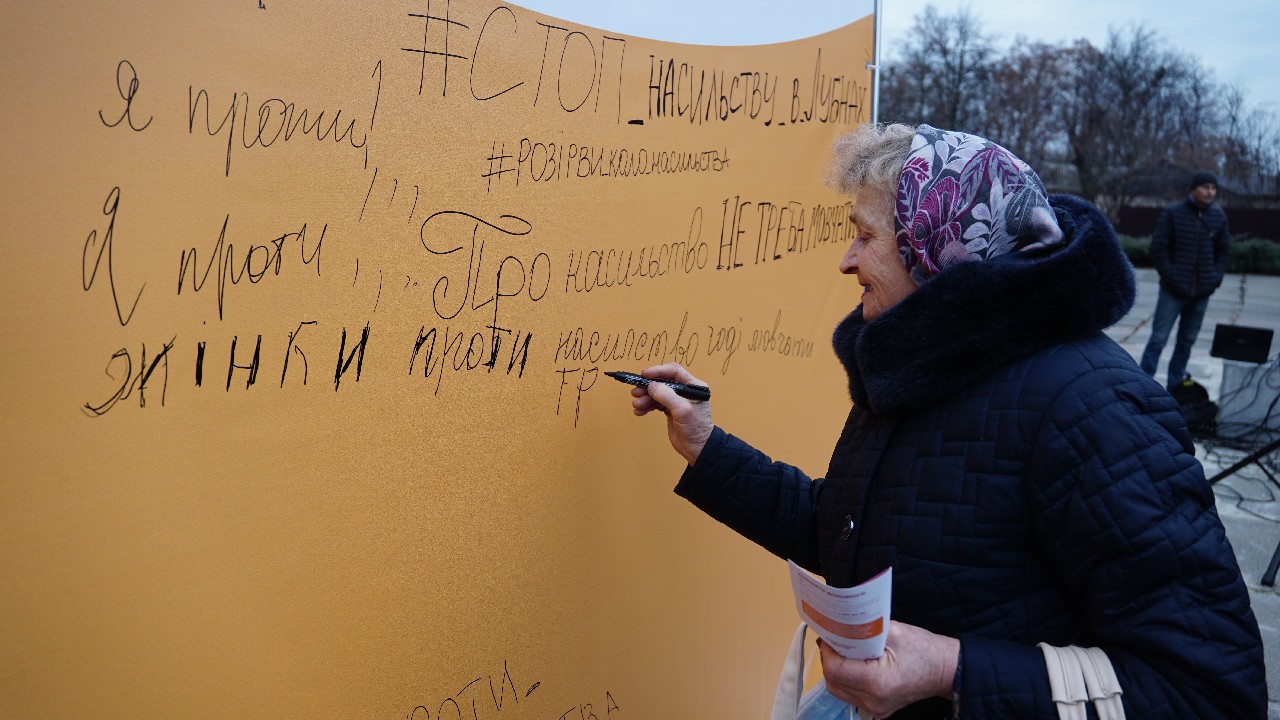 #СТОП_насильству_в_Лубнах
Я проти!
#розірви_коло_насильства
Я проти,,,
Про насильство НЕ ТРЕБА МОВЧАТИ
Жінки проти
насилство годі мовчати
ГР
РОТИ-
СТВА